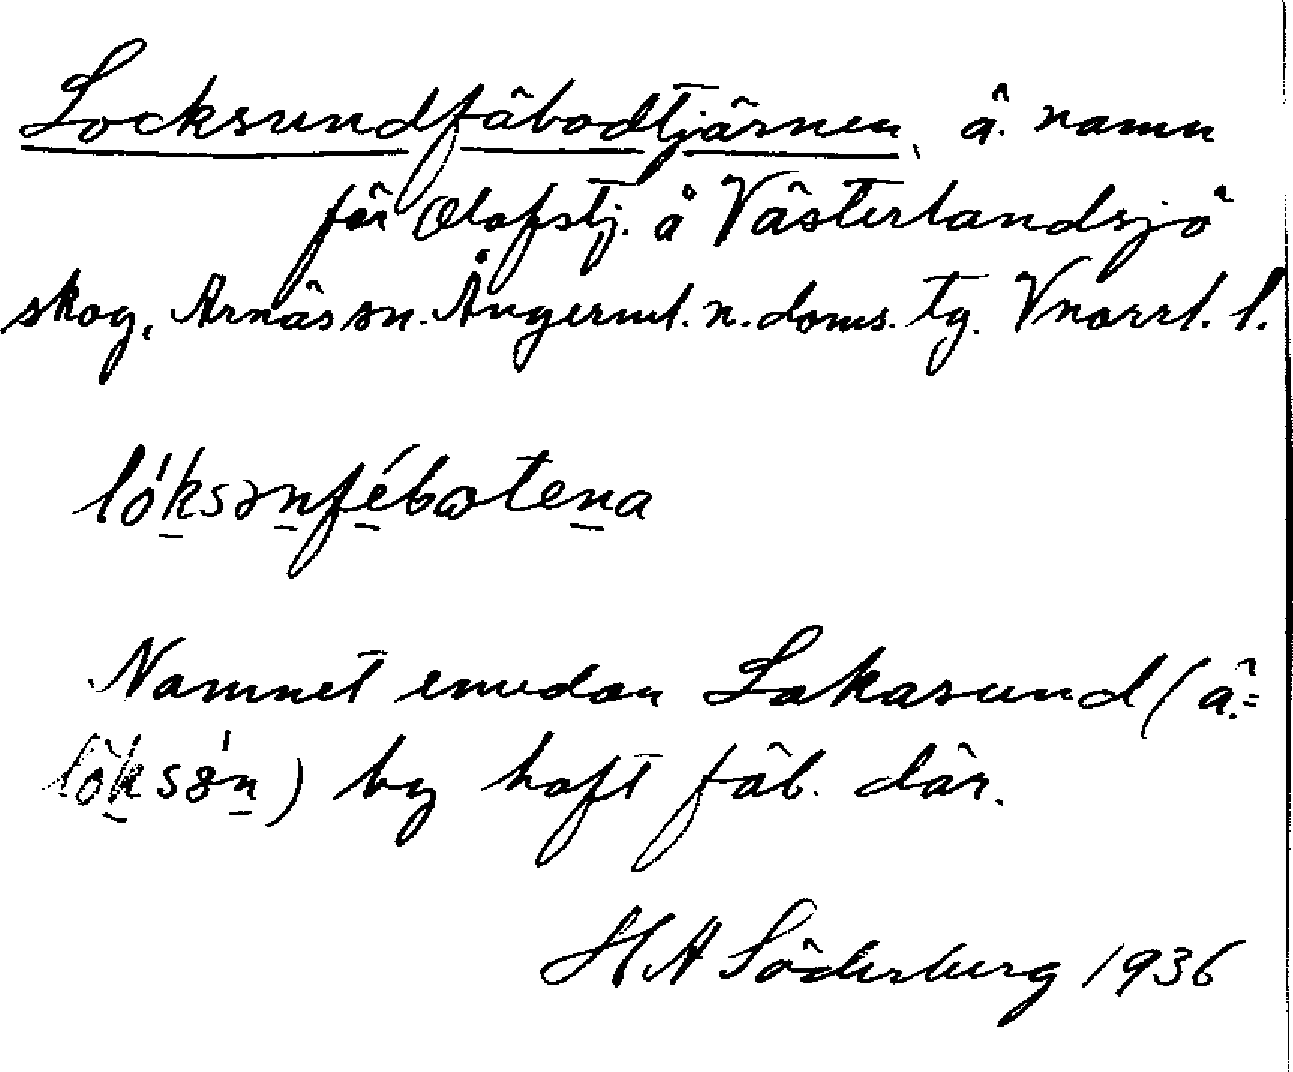 Locksundfäbodtjärnen, ä. namn
för Olofstj. å Västerlandsjö
skog, Arnäs sn. Ångerml. n. doms. tg. Vnorrl. l.
lóksənfébωtena
Namnet emedan Lakasund (ä.=
lòksən) by haft fäb. där.
H A Söderberg 1936